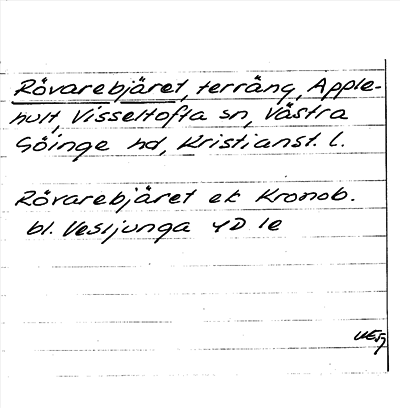 Rövarebjäret, terräng, Apple-
hult, Visseltofta sn, Västra
Göinge hd, Kristianst. l.
Rövarebjäret ek Kronob.
bl. Vesljunga 4D 1e